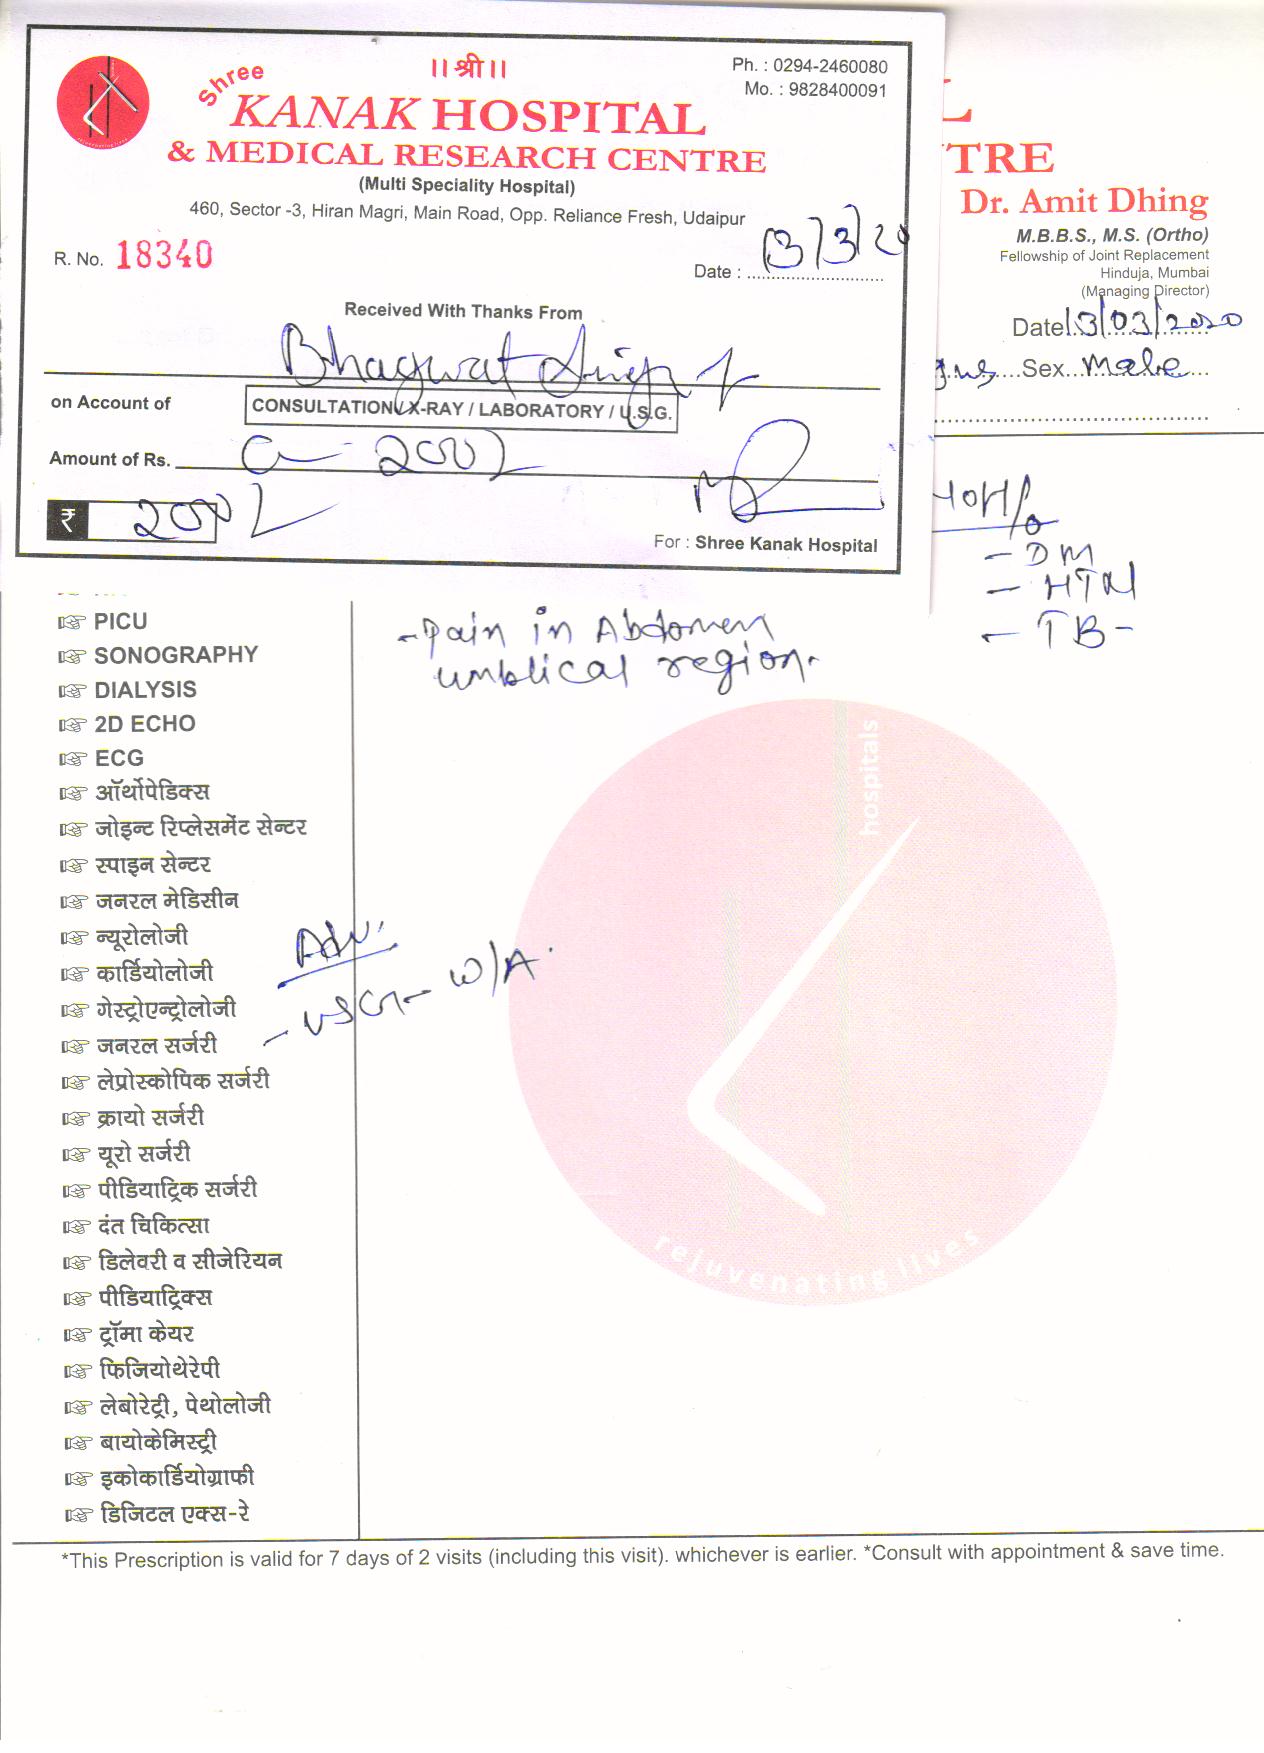 ।। श्री ।।
Ph. : 0294-2460080
Mo. : 9828400091
Shree
KANAK HOSPITAL
& MEDICAL RESEARCH CENTRE
(Multi Speciality Hospital)
460, Sector -3, Hiran Magri, Main Road, Opp. Reliance Fresh, Udaipur
R. No. 18340
Date : 13/3/20
Received With Thanks From
Bhagwat Singh
on Account of
CONSULTATION / X-RAY / LABORATORY / U.S.G.
Amount of Rs. 200/-
₹ 200/-
For : Shree Kanak Hospital
L
TRE
Dr. Amit Dhing
M.B.B.S., M.S. (Ortho)
Fellowship of Joint Replacement
Hinduja, Mumbai
(Managing Director)
Date 13/03/2020
Sex Male
- DM
- HTN
- TB -
- Pain in Abdomen
umblical region.
PICU
SONOGRAPHY
DIALYSIS
2D ECHO
ECG
ऑर्थोपेडिक्स
जोइन्ट रिप्लेसमेंट सेन्टर
स्पाइन सेन्टर
जनरल मेडिसीन
न्यूरोलोजी
कार्डियोलोजी
गेस्ट्रोएन्ट्रोलोजी
जनरल सर्जरी
लेप्रोस्कोपिक सर्जरी
क्रायो सर्जरी
यूरो सर्जरी
पीडियाट्रिक सर्जरी
दंत चिकित्सा
डिलेवरी व सीजेरियन
पीडियाट्रिक्स
ट्रॉमा केयर
फिजियोथेरेपी
लेबोरेट्री, पेथोलोजी
बायोकेमिस्ट्री
इकोकार्डियोग्राफी
डिजिटल एक्स-रे
Adv.
- USG - W/A.
hospitals
rejuvenating lives
*This Prescription is valid for 7 days of 2 visits (including this visit). whichever is earlier. *Consult with appointment & save time.